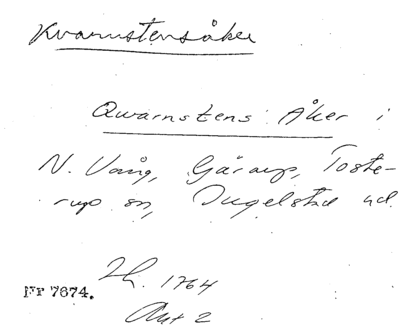 Kvarnstensåker
Qwarnstens Åker i
N. Vång, Gärarp, Toste-
rup sn, Ingelstad hd.
Lh. 1764
Akt 2
Nr 7674.